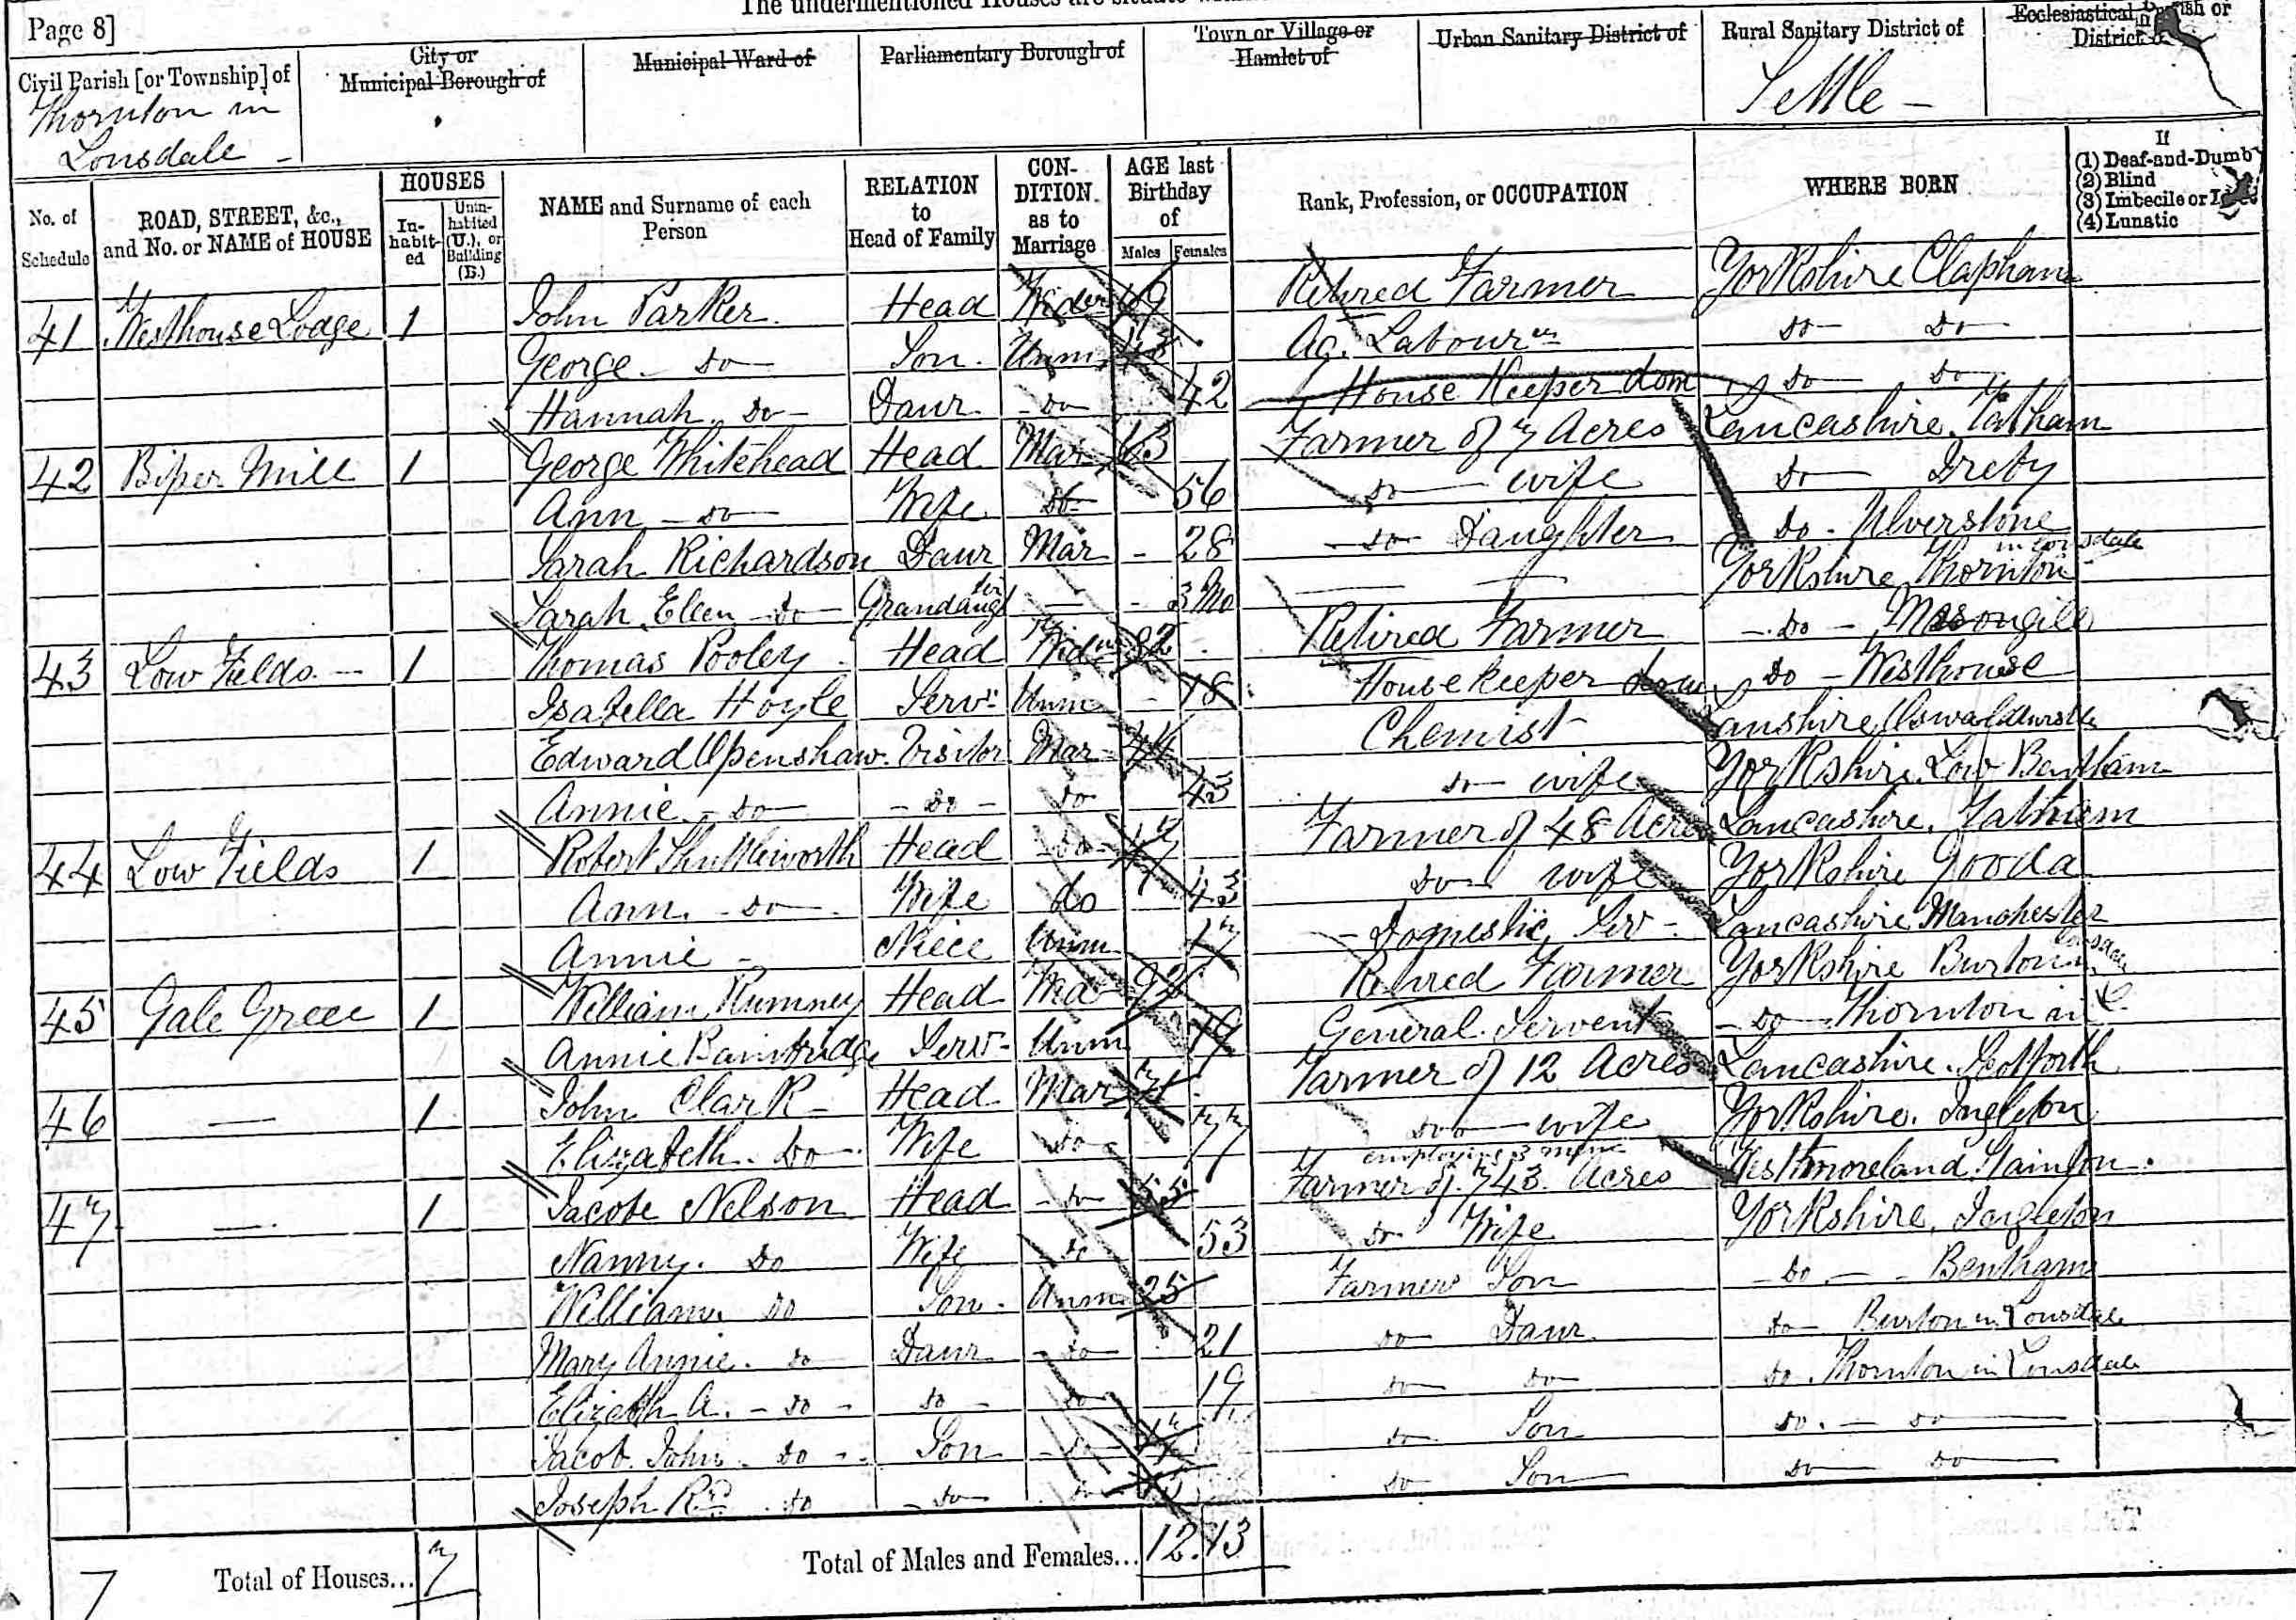 The undermentioned Houses are situate
Page 8]
Civil Parish [or Township] of
Thornton in
Lonsdale
City or
Municipal Borough of
Municipal Ward of
Parliamentary Borough of
Town or Village or
Hamlet of
Urban Sanitary District of
Rural Sanitary District of
Settle
Ecclesiastical Parish or
District
No. of
Schedule
ROAD, STREET, &c.,
and No. or NAME of HOUSE
HOUSES
In-
habit-
ed
Unin-
habited
(U.), or
Building
(B.)
NAME and Surname of each
Person
RELATION
to
Head of Family
CON-
DITION
as to
Marriage
AGE last
Birthday
of
Males Females
Rank, Profession, or OCCUPATION
WHERE BORN
If
(1) Deaf-and-Dumb
(2) Blind
(3) Imbecile or
(4) Lunatic
41 Westhouse Lodge 1 John Parker Head Widr Retired Farmer Yorkshire Clapham
George Do Son Unm Ag. Labourer Do Do
Hannah Do Daur Do 42 House Keeper dom Do Do
42 Biper Mill 1 George Whitehead Head Mar 63 Farmer of 7 Acres Lancashire Tatham
Ann Do Wife Do 56 Do wife Do Ireby
Sarah Richardson Daur Mar 28 Do Daughter Do Ulverstone
Sarah Ellen Do Grandaughter 3 Mo Yorkshire Thornton in Lonsdale
43 Low Fields 1 Thomas Pooley Head Widr 82 Retired Farmer Do Masongill
Isabella Hoyle Servt Unm 18 House keeper Do Westhouse
Edward Openshaw Visitor Mar 44 Chemist Lanshire
Annie Do Do Do 43 Do wife Yorkshire Low Bentham
44 Low Fields 1 Robert Shuttleworth Head Do 47 Farmer of 48 Acres Lancashire Tatham
Ann Do Wife do 43 Do wife Yorkshire Gooda
Annie Niece Unm 17 Domestic Serv Lancashire Manchester
45 Gale Green 1 William Rumney Head Wid 92 Retired Farmer Yorkshire Burton in Lonsdale
Annie Bainbridge Servt Unm 19 General Servent Do Thornton in L
46 1 John Clark Head Mar 71 Farmer of 12 Acres Lancashire Scotforth
Elizabeth Do Wife Do 77 Do wife Yorkshire Ingleton
47 1 Jacob Nelson Head Do 55 Farmer of 743 Acres employing 3 men Westmoreland
Nanny Do Wife Do 53 Do Wife Yorkshire Ingleton
William Do Son Unm 25 Farmers Son Do Bentham
Mary Annie Do Daur Do 21 Do Daur Do Burton in Lonsdale
Elizath A. Do Do Do 19 Do Do Do Thornton in Lonsdale
Jacob John Do Son Do Do Son Do Do
Joseph Rd Do Do Do Do Son Do Do
7 Total of Houses... 7 Total of Males and Females... 12 13